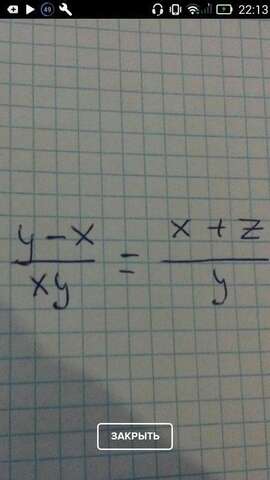 49 22:13
y - x / xy = x + z / y
ЗАКРЫТЬ